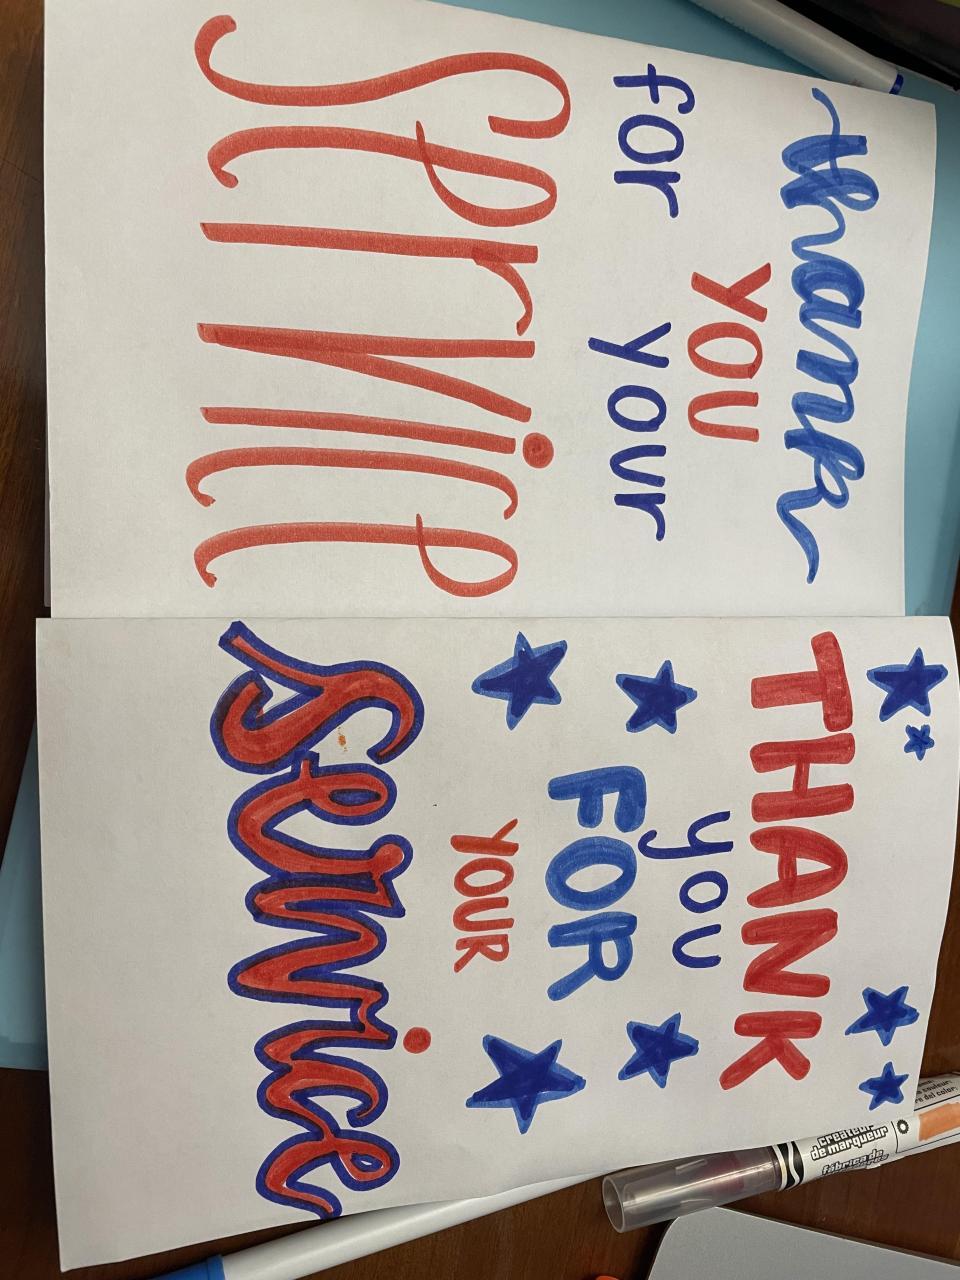 thank
you
for your
service
THANK
you
FOR
YOUR
service
créateur
de marqueur
fábrica de